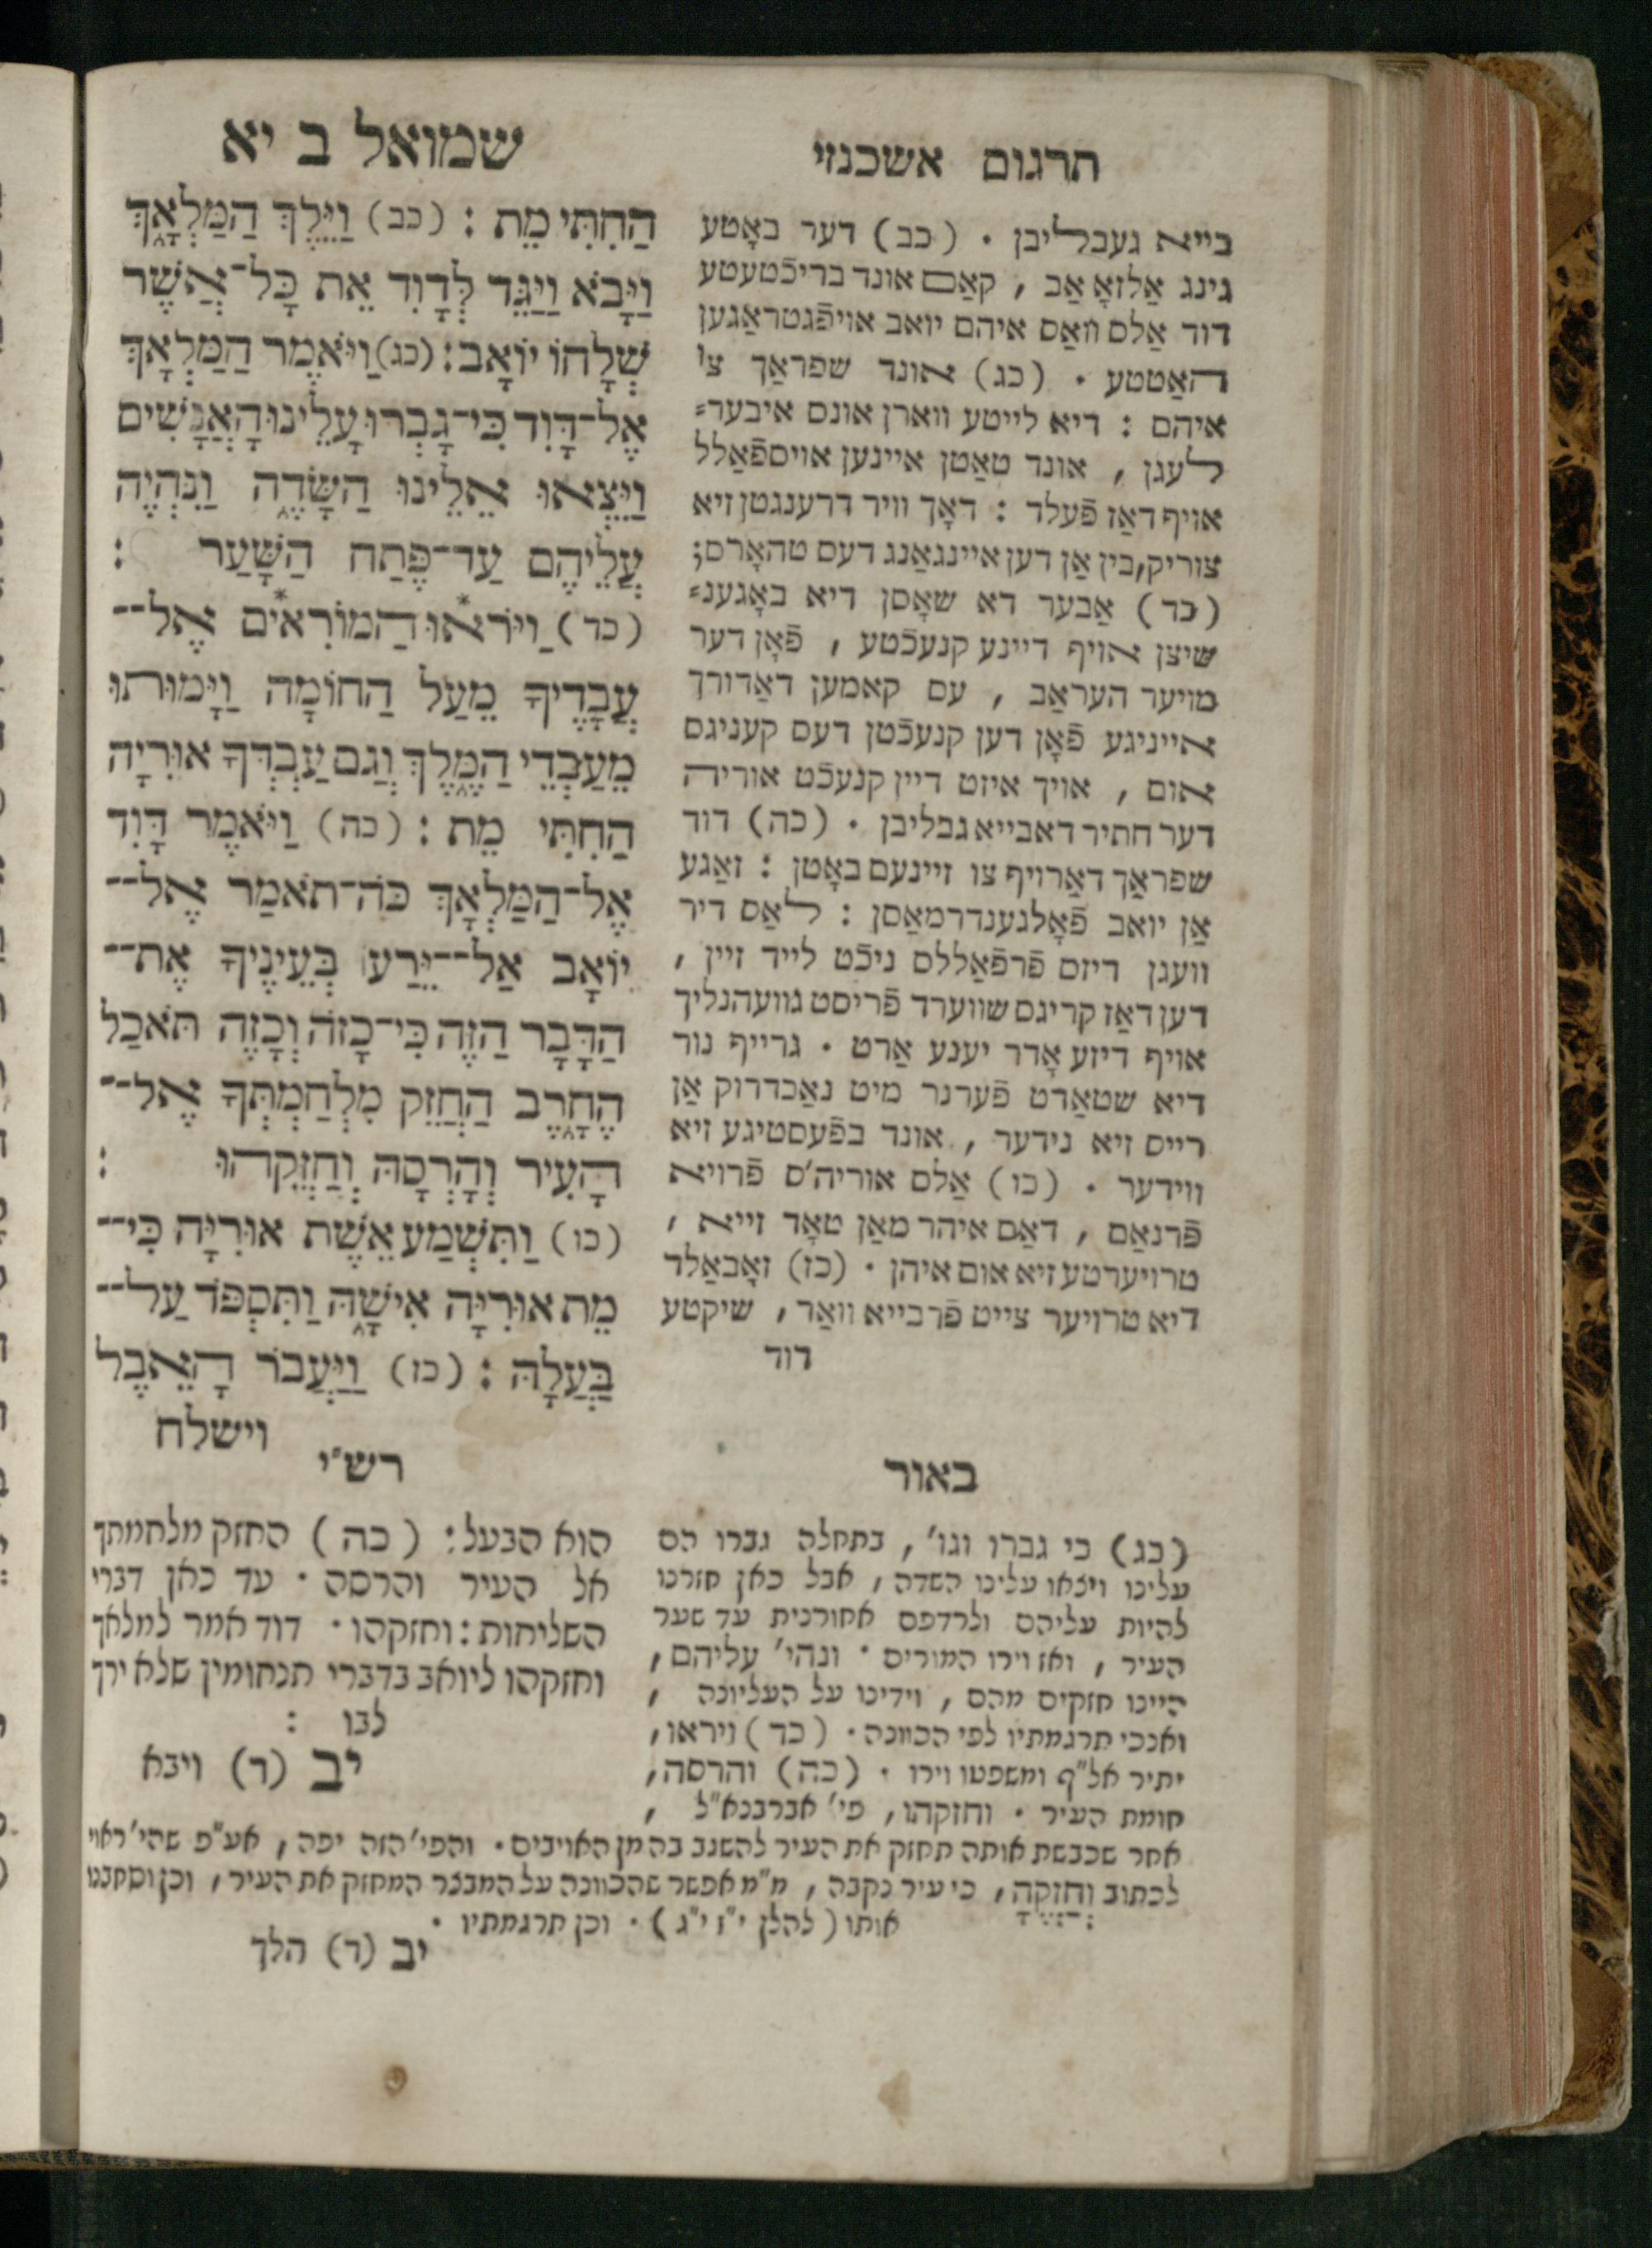 תרגום אשכנזי
בייא געבליבן . (כב) דער באָטע
גינג אַלזאָ אַב , קאַם אונד בריכֿטעטע
דוד אַלם וואַס איהם יואב אויפֿגטראַגען
האַטטע . (כג) אונד שפראַך צו
איהם : דיא לייטע ווארן אונם איבער=
לעגן , אונד טאַטן איינען אויםפֿאַלל
אויף דאַז פֿעלד : דאָך וויר דרענגטן זיא
צוריק, בין אַן דען איינגאַנג דעם טהאָרם;
(כד) אַבער דא שאָסן דיא באָגענ=
שיצן אויף דיינע קנעכֿטע , פֿאָן דער
מויער העראַב , עם קאמען דאַדורך
אייניגע פֿאָן דען קנעכֿטן דעם קעניגם
אום , אויך איזט דיין קנעכֿט אוריה
דער חתיר דאבייא גבליבן . (כה) דוד
שפראַך דאַרויף צו זיינעם באָטן : זאַגע
אַן יואב פֿאָלגענדרמאַסן : לאַס דיר
וועגן דיזם פֿרפֿאַללם ניכֿט לייד זיין ,
דען דאַז קריגם שווערד פֿריסט גוועהנליך
אויף דיזע אָדר יענע אַרט . גרייף נור
דיא שטאַדט פֿערנר מיט נאַכדרוק אַן
רייס זיא נידער , אונד בפֿעסטיגע זיא
ווידער . (כו) אַלם אוריה'ם פֿרויא
פֿרנאַם , דאַם איהר מאַן טאָד זייא ,
טרויערטע זיא אום איהן . (כז) זאָבאַלד
דיא טרויער צייט פֿרבייא וואַר , שיקטע
דוד
שמואל ב יא
הַחִתִּי מֵת : (כב) וַיֵּלֶךְ הַמַּלְאָךְ
וַיָּבֹא וַיַּגֵּד לְדָוִד אֵת כָּל־אֲשֶׁר
שְׁלָחוֹ יוֹאָב : (כג) וַיֹּאמֶר הַמַּלְאָךְ
אֶל־דָּוִד כִּי־גָבְרוּ עָלֵינוּ הָאֲנָשִׁים
וַיֵּצְאוּ אֵלֵינוּ הַשָּׂדֶה וַנִּהְיֶה
עֲלֵיהֶם עַד־פֶּתַח הַשָּׁעַר :
(כד) וַיֹּרְאוּ הַמּוֹרִאים אֶל־־
עֲבָדֶיךָ מֵעַל הַחוֹמָה וַיָּמוּתוּ
מֵעַבְדֵי הַמֶּלֶךְ וְגַם עַבְדְּךָ אוּרִיָּה
הַחִתִּי מֵת : (כה) וַיֹּאמֶר דָּוִד
אֶל־הַמַּלְאָךְ כֹּה־תֹאמַר אֶל־־
יוֹאָב אַל־־יֵרַע בְּעֵינֶיךָ אֶת־־
הַדָּבָר הַזֶּה כִּי־כָזֹה וְכָזֶה תֹּאכַל
הֶחָרֶב הַחֲזֵק מִלְחַמְתְּךָ אֶל־־
הָעִיר וְהָרְסָהּ וְחַזְּקֵהוּ :
(כו) וַתִּשְׁמַע אֵשֶׁת אוּרִיָּה כִּי־־
מֵת אוּרִיָּה אִישָׁהּ וַתִּסְפֹּד עַל־־
בַּעְלָהּ : (כז) וַיַּעֲבֹר הָאֵבֶל
וישלח
באור
(כג) כי גברו וגו' , בתחלה גברו הם
עלינו ויצאו עלינו השדה , אבל כאן חזרנו
להיות עליהם ולרדפם אחורנית עד שער
העיר , ואז וירו המורים . ונהי' עליהם ,
היינו חזקים מהם , וידינו על העליונה ,
ואנכי תרגמתיו לפי הכוונה . (כד) ויראו ,
יתיר אל"ף ומשפטו וירו . (כה) והרסה ,
חומת העיר . וחזקהו , פי' אברבנא"ל ,
אחר שכבשת אותה תחזק את העיר להשגב בה מן האויבים . והפי' הזה יפה , אע"פ שהי' ראוי
לכתוב וְחַזְּקֶהָ , כי עיר נקבה , מ"מ אפשר שהכוונה על המבצר המחזק את העיר , וכן וסחבנו
אותו (להלן י"ז י"ג) . וכן תרגמתיו .
יב (ד) הלך
רש"י
הוא הבעל : (כה) החזק מלחמתך
אל העיר והרסה . עד כאן דברי
השליחות : וחזקהו . דוד אמר למלאך
וחזקהו ליואב בדברי תנחומין שלא ירך
לבו :
יב (ד) ויבא